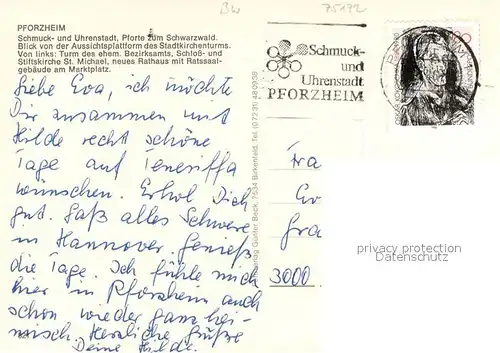 BW
75172
PFORZHEIM
Schmuck- und Uhrenstadt, Pforte zum Schwarzwald.
Blick von der Aussichtsplattform des Stadtkirchenturms.
Von links: Turm des ehem. Bezirksamts, Schloß- und
Stiftskirche St. Michael, neues Rathaus mit Ratssaal-
gebäude am Marktplatz.
Schmuck-
und
Uhrenstadt
PFORZHEIM
Liebe Eva, ich möchte
Dir zusammen mit
Hilde recht schöne
Tage auf Teneriffa
wünschen. Erhol Dich
gut. Laß alles Schwere
in Hannover. Genieß
die Tage. Ich fühle mich
hier in Pforzheim auch
schon wieder ganz hei-
misch. Herzliche Grüße
Deine Hilde.
Verlag Günter Beck, 7534 Birkenfeld, Tel. (07231) 480938
Fra
Ev
Gra
3000
privacy protection
Datenschutz